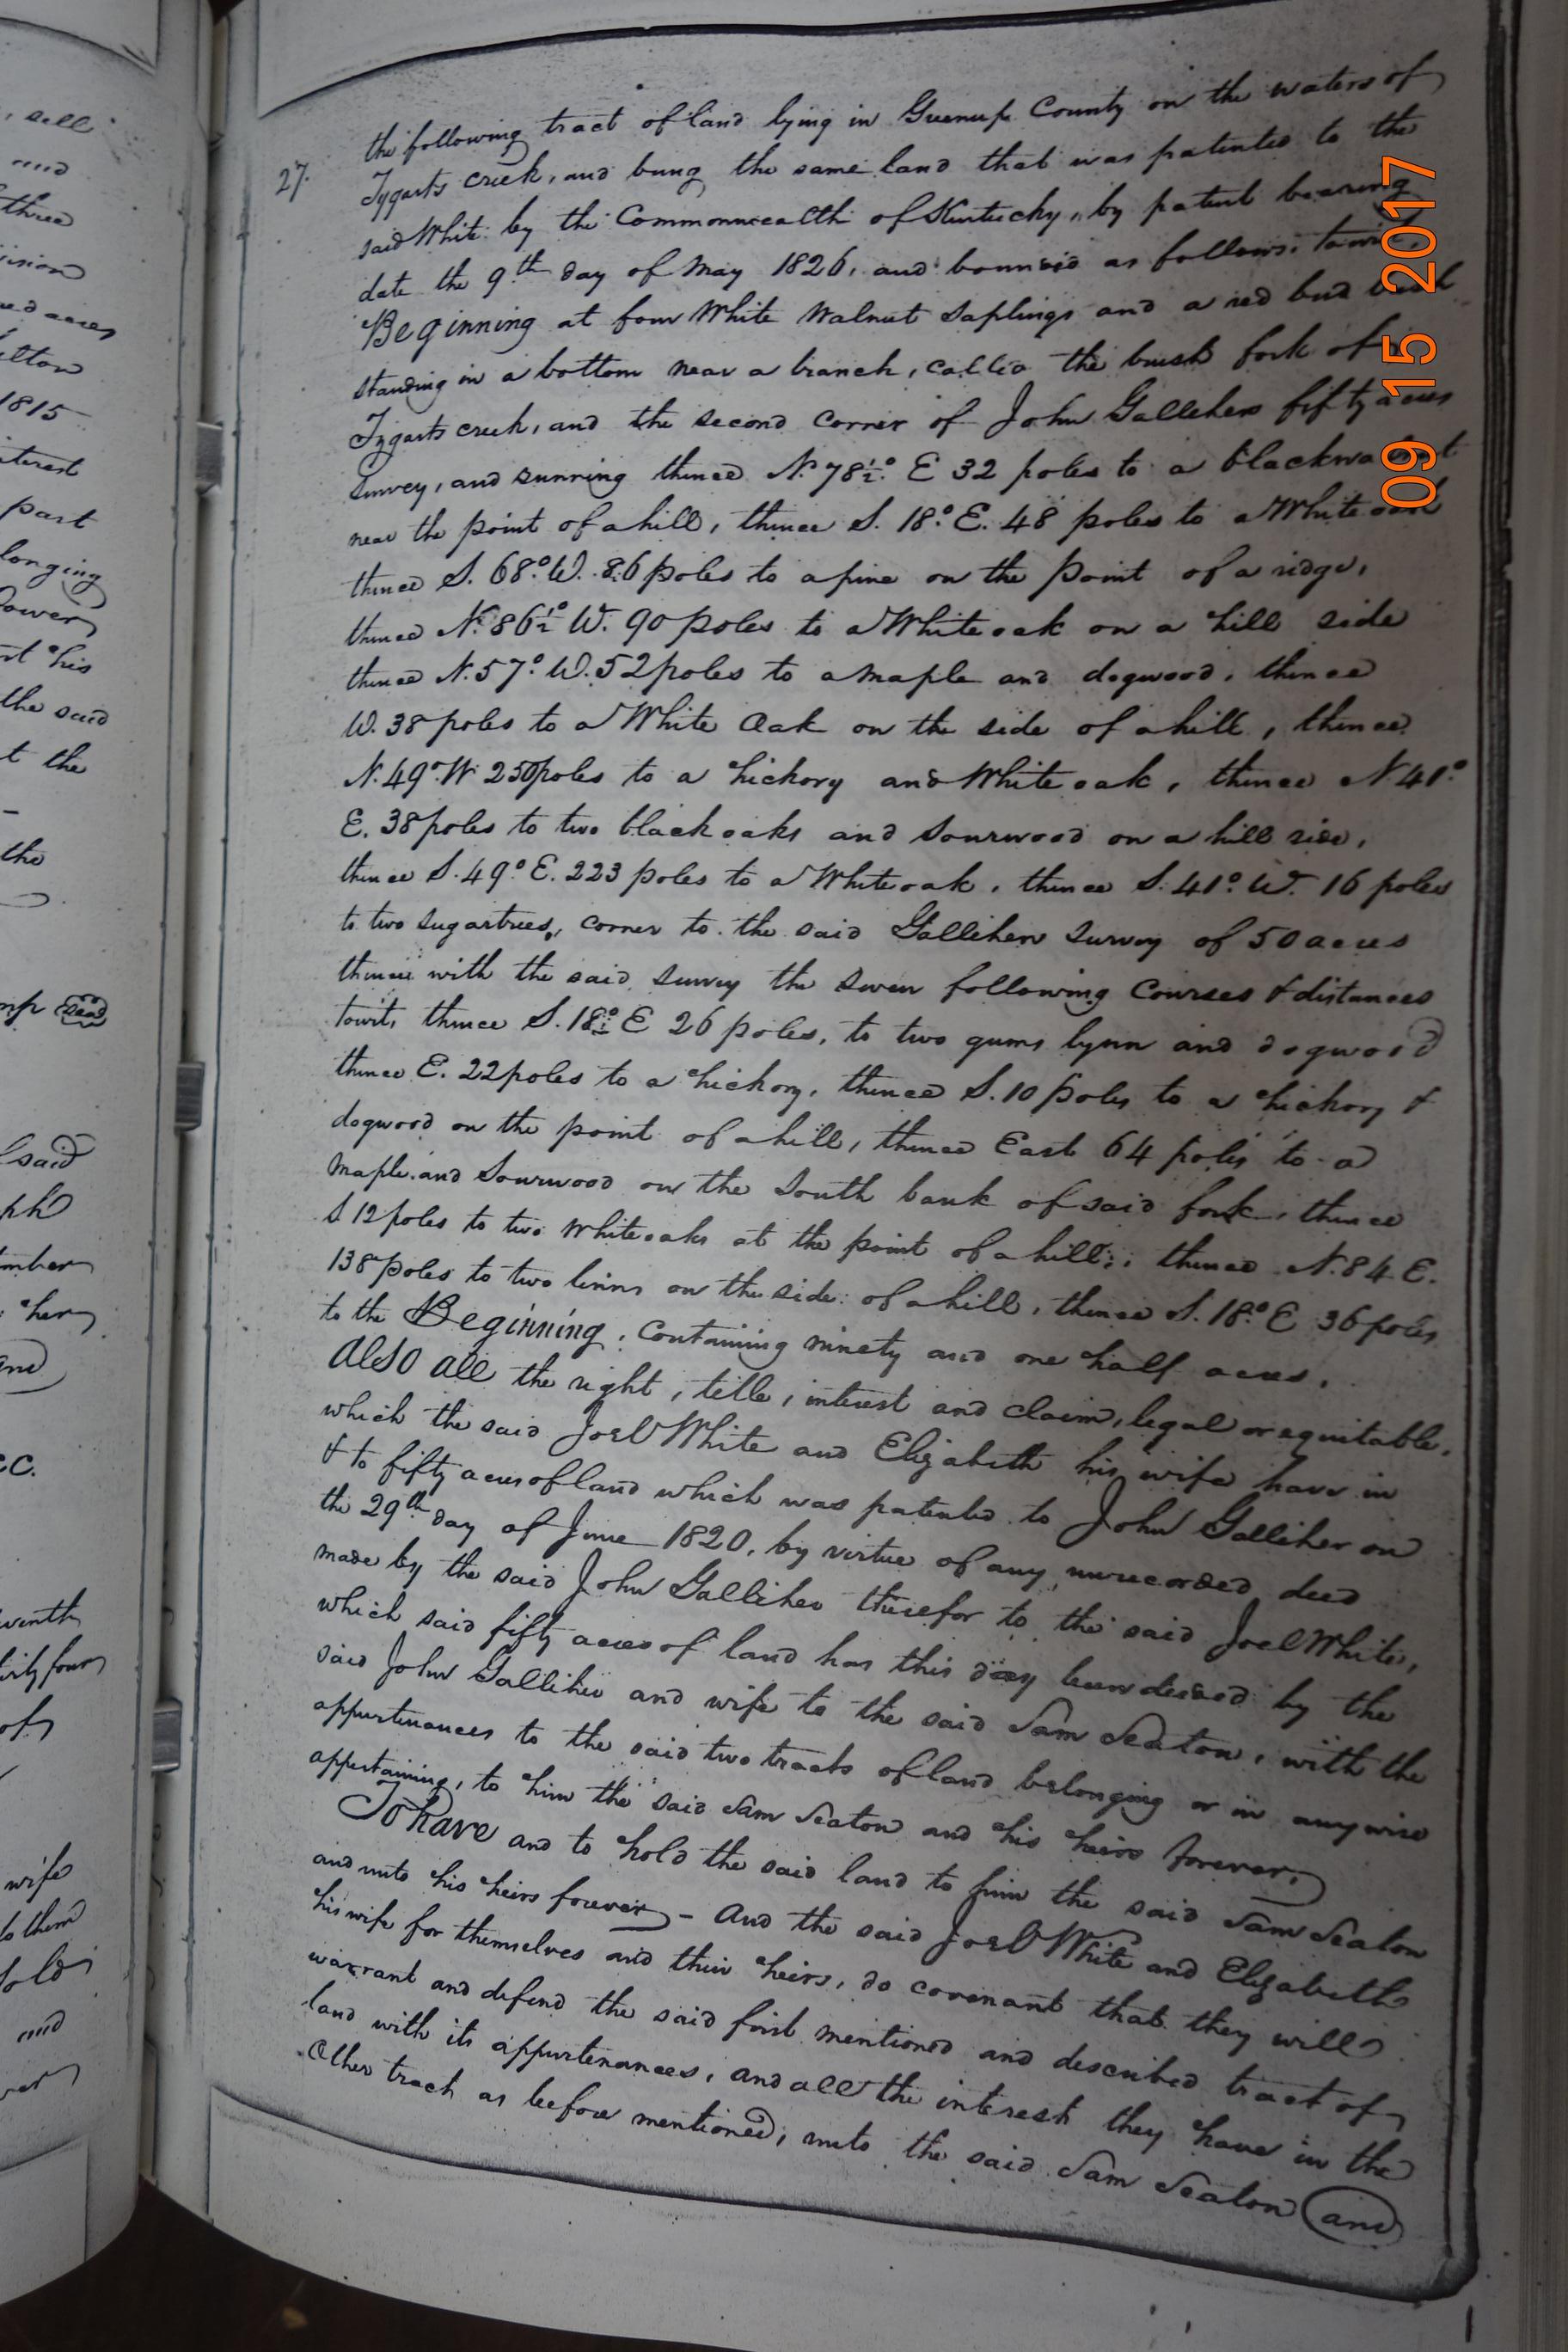 , sell
and
three
ision
ed acres
lton
1815
terest
part
longing
Power
rt his
the said
t the
the
mp Seal
said
ph
mber
her
and
&C.
venth
irty four
of
wife
to them
sold
and
ver
27.
the following tract of land lying in Greenup County on the waters of
Tygarts creek, and being the same land that was patented to the
said White by the Commonwealth of Kentucky, by patent bearing
date the 9th day of May 1826, and bounded as follows, towit,
Beginning at four White Walnut Saplings and a red bud bush
standing in a bottom near a branch, called the brush fork of
Tygarts creek, and the second corner of John Gallihers fifty acres
Survey, and running thence N. 78½° E 32 poles to a black walnut
near the point of a hill, thence S. 18° E. 48 poles to a White oak
thence S. 68° W. 86 poles to a pine on the point of a ridge,
thence N. 86½° W. 90 poles to a White oak on a hill side
thence N. 57° W. 52 poles to a maple and dogwood, thence
W. 38 poles to a White Oak on the side of a hill, thence
N. 49° W 250 poles to a hickory and White oak, thence N 41°
E. 38 poles to two black oaks and Sourwood on a hill side,
thence S. 49° E. 223 poles to a White oak, thence S. 41° W. 16 poles
to two Sugartrees, corner to the said Galliher Survey of 50 acres
thence with the said survey the seven following Courses & distances
towit, thence S. 18½° E 26 poles, to two gums lynn and dogwood
thence E. 22 poles to a hickory, thence S. 10 poles to a hickory &
dogwood on the point of a hill, thence East 64 poles to a
Maple and Sourwood on the South bank of said fork, thence
S 12 poles to two White oaks at the point of a hill, thence N. 84 E.
138 poles to two linns on the side of a hill, thence S. 18° E 36 poles
to the Beginning, containing ninety and one half acres.
Also all the right, title, interest and claim, legal or equitable,
which the said Joel White and Elizabeth his wife have in
& to fifty acres of land which was patented to John Galliher on
the 29th day of June 1820, by virtue of any unrecorded deed
made by the said John Galliher therefor to the said Joel White,
which said fifty acres of land has this day been deeded by the
said John Galliher and wife to the said Sam Seaton, with the
appurtenances to the said two tracts of land belonging or in anywise
appertaining, to him the said Sam Seaton and his heirs forever,
To have and to hold the said land to him the said Sam Seaton
and unto his heirs forever - And the said Joel White and Elizabeth
his wife for themselves and their heirs, do covenant that they will
warrant and defend the said first mentioned and described tract of
land with its appurtenances, and all the interest they have in the
other tract as before mentioned, unto the said Sam Seaton and
09 15 2017